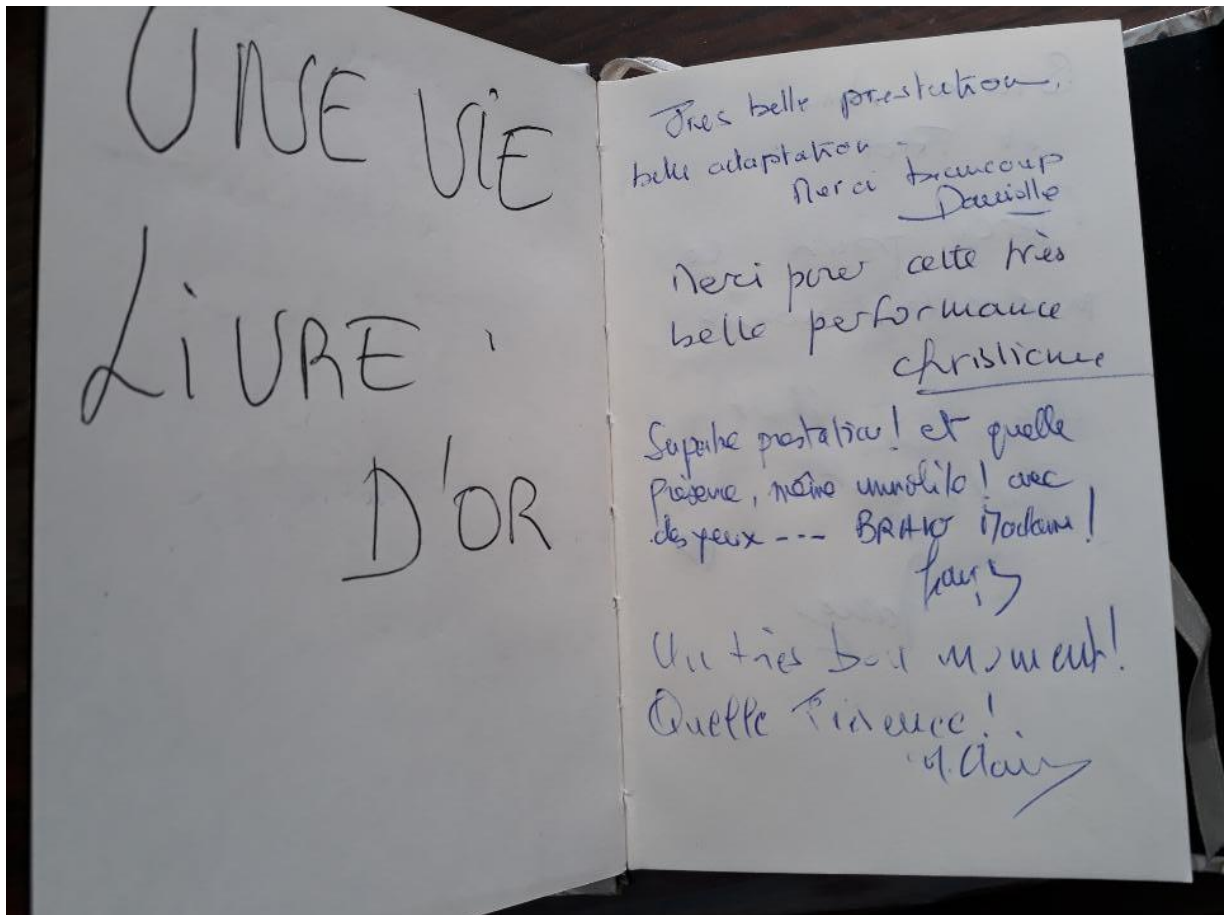 UNE VIE
LIVRE
D'OR
Très belle prestation,
belle adaptation
Merci beaucoup
Danielle
Merci pour cette très
belle performance
Christiane
Superbe prestation ! et quelle
présence, même immobile ! avec
des yeux --- BRAVO Madame !
Un très bon moment !
Quelle Présence !
M. Clair